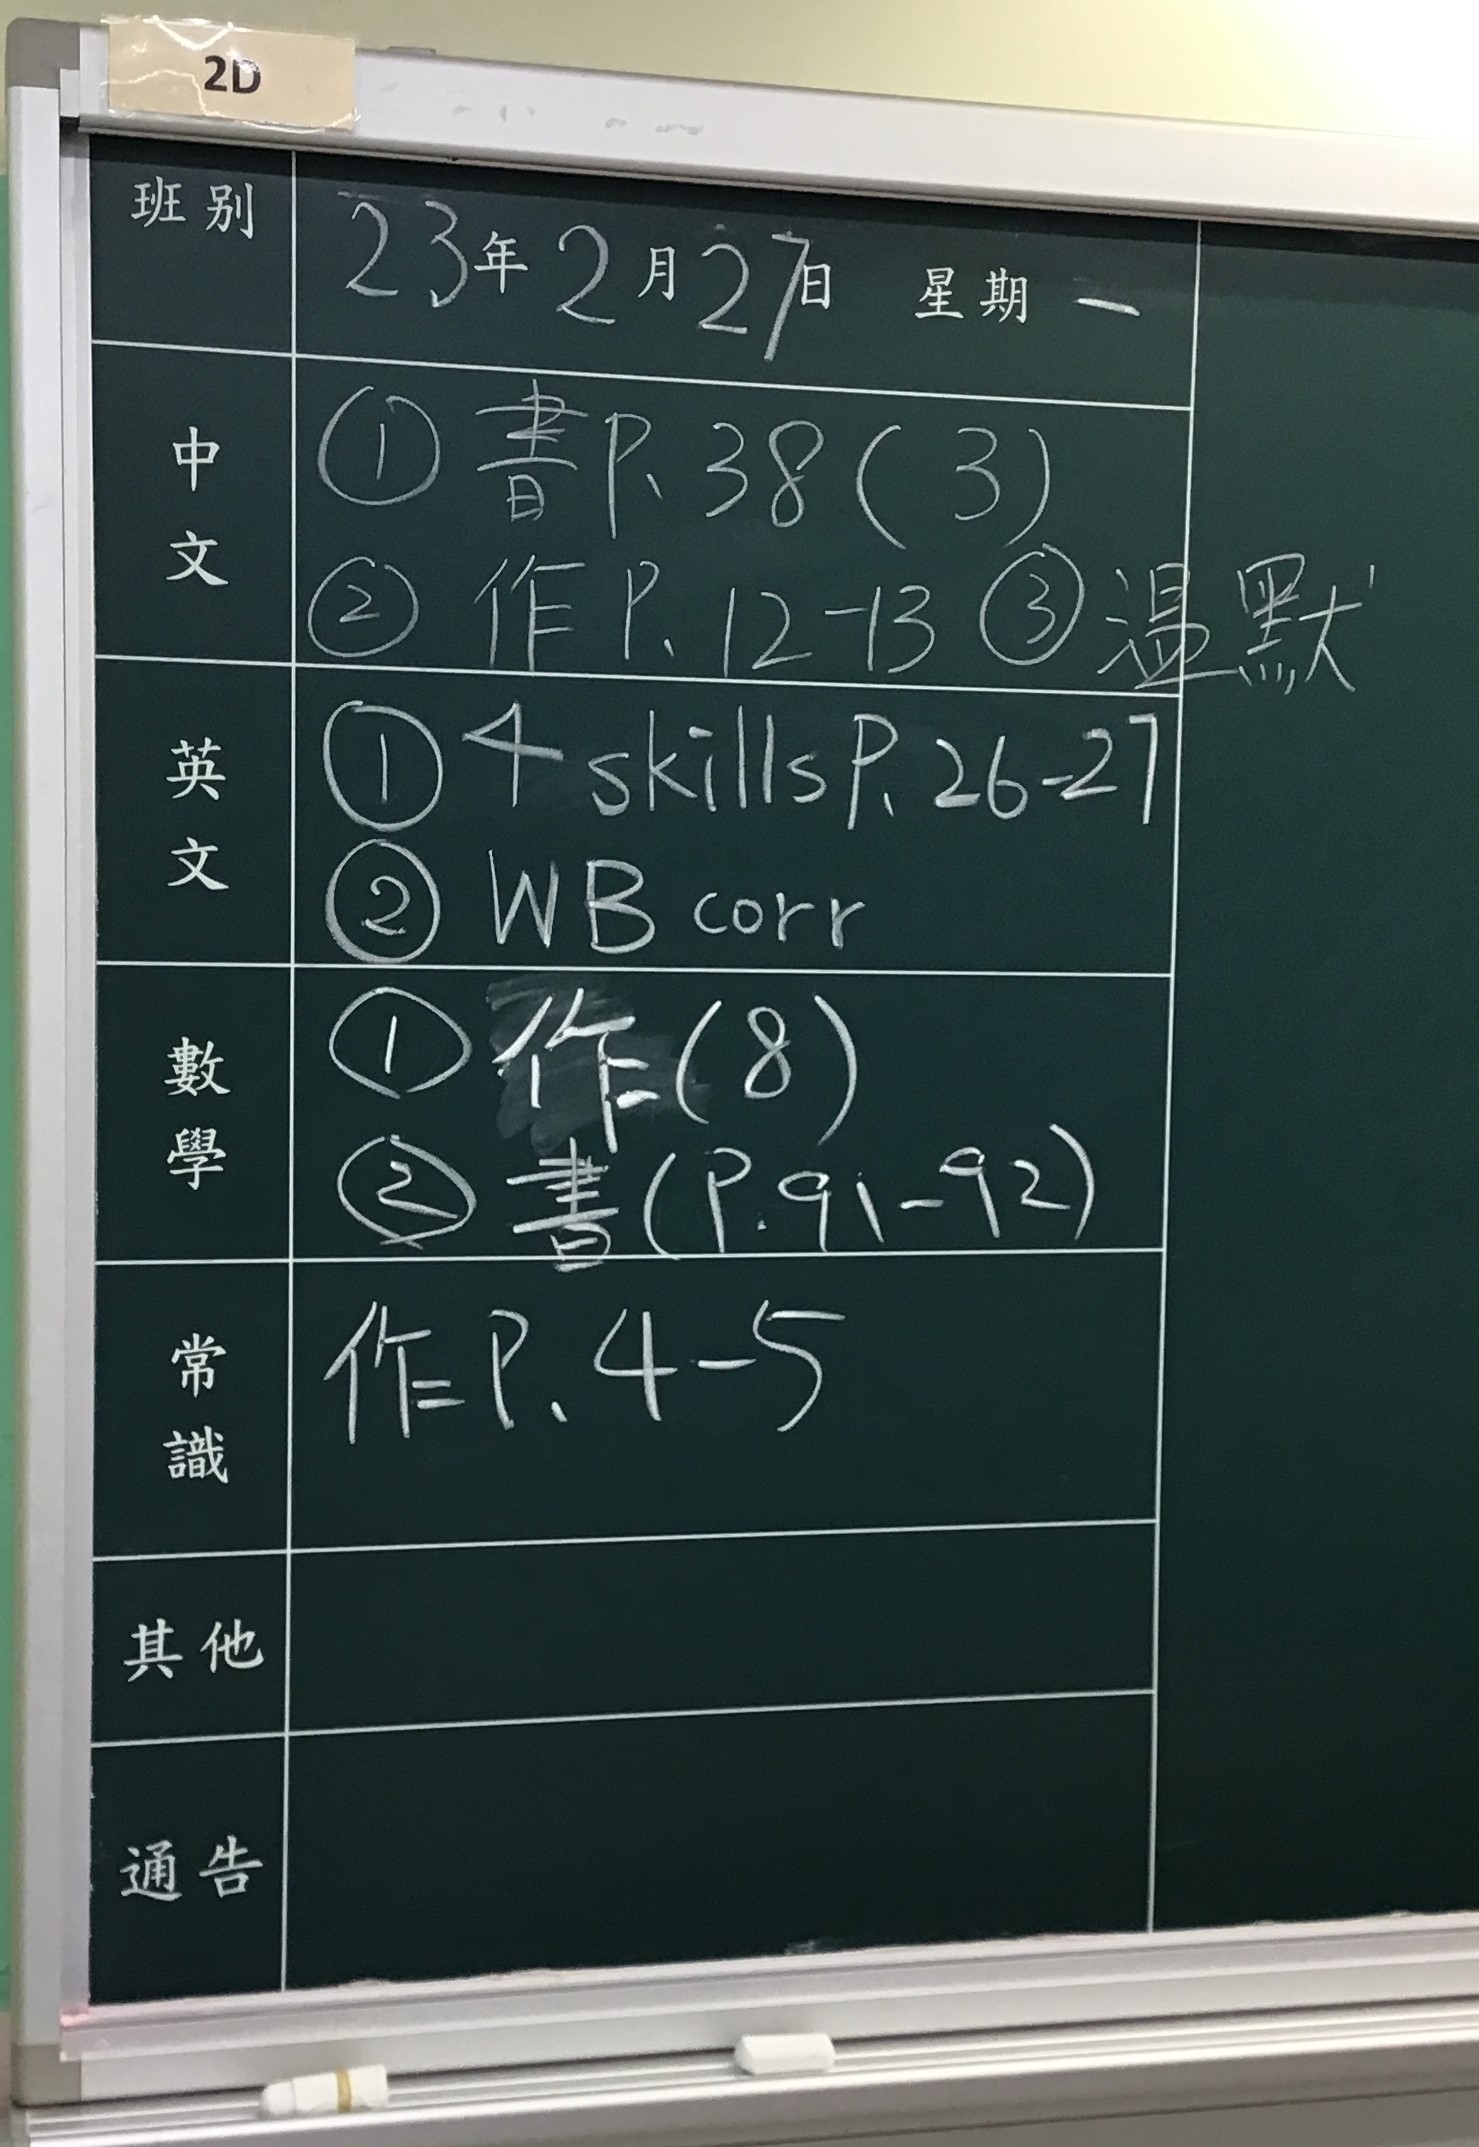 2D
班別
23年2月27日 星期一
中文
① 書P.38(3)
② 作P.12-13 ③溫默
英文
① 4 skills P.26-27
② WB corr
數學
① 作(8)
② 書(P.91-92)
常識
作P.4-5
其他
通告